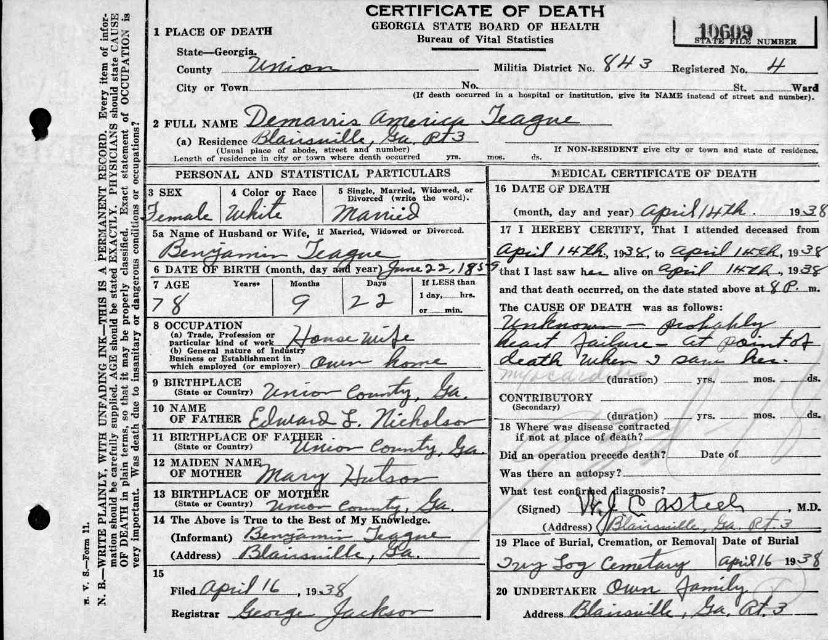 CERTIFICATE OF DEATH
GEORGIA STATE BOARD OF HEALTH
Bureau of Vital Statistics
10609
STATE FILE NUMBER
1 PLACE OF DEATH
State—Georgia.
County Union Militia District No. 843 Registered No. 4
City or Town No. St. Ward
(If death occurred in a hospital or institution, give its NAME instead of street and number).
2 FULL NAME Demarris America Teague
(a) Residence Blairsville, Ga. Rt 3
(Usual place of abode, street and number) If NON-RESIDENT give city or town and state of residence.
Length of residence in city or town where death occurred yrs. mos. ds.
PERSONAL AND STATISTICAL PARTICULARS
3 SEX 4 Color or Race 5 Single, Married, Widowed, or Divorced (write the word).
Female White Married
5a Name of Husband or Wife, if Married, Widowed or Divorced.
Benjamin Teague
6 DATE OF BIRTH (month, day and year) June 22, 1859
7 AGE Years Months Days If LESS than
1 day, hrs.
or min.
78 9 22
8 OCCUPATION
(a) Trade, Profession or
particular kind of work House wife
(b) General nature of Industry
Business or Establishment in
which employed (or employer) Own home
9 BIRTHPLACE
(State or Country) Union County, Ga.
10 NAME
OF FATHER Edward L. Nicholson
11 BIRTHPLACE OF FATHER
(State or Country) Union County, Ga.
12 MAIDEN NAME
OF MOTHER Mary Hutson
13 BIRTHPLACE OF MOTHER
(State or Country) Union County, Ga.
14 The Above is True to the Best of My Knowledge.
(Informant) Benjamin Teague
(Address) Blairsville, Ga.
15
Filed April 16, 1938
Registrar George Jackson
MEDICAL CERTIFICATE OF DEATH
16 DATE OF DEATH
(month, day and year) April 14th. 1938
17 I HEREBY CERTIFY, That I attended deceased from
April 14th, 1938, to April 14th, 1938
that I last saw her alive on April 14th, 1938
and that death occurred, on the date stated above at 8 P. m.
The CAUSE OF DEATH was as follows:
Unknown - probably
heart failure - at point of
death when I saw her.
(duration) yrs. mos. ds.
CONTRIBUTORY
(Secondary)
(duration) yrs. mos. ds.
18 Where was disease contracted
if not at place of death?
Did an operation precede death? Date of
Was there an autopsy?
What test confirmed diagnosis?
(Signed) M.D.
(Address) Blairsville, Ga. Rt. 3
19 Place of Burial, Cremation, or Removal Date of Burial
Ivy Log Cemetary April 16 1938
20 UNDERTAKER Own Family
Address Blairsville, Ga. Rt. 3
N. B.—WRITE PLAINLY, WITH UNFADING INK—THIS IS A PERMANENT RECORD. Every item of infor-
mation should be carefully supplied. AGE should be stated EXACTLY. PHYSICIANS should state CAUSE
OF DEATH in plain terms, so that it may be properly classified. Exact statement of OCCUPATION is
very important. Was death due to insanitary or dangerous conditions or occupations?
V. S.—Form 11.